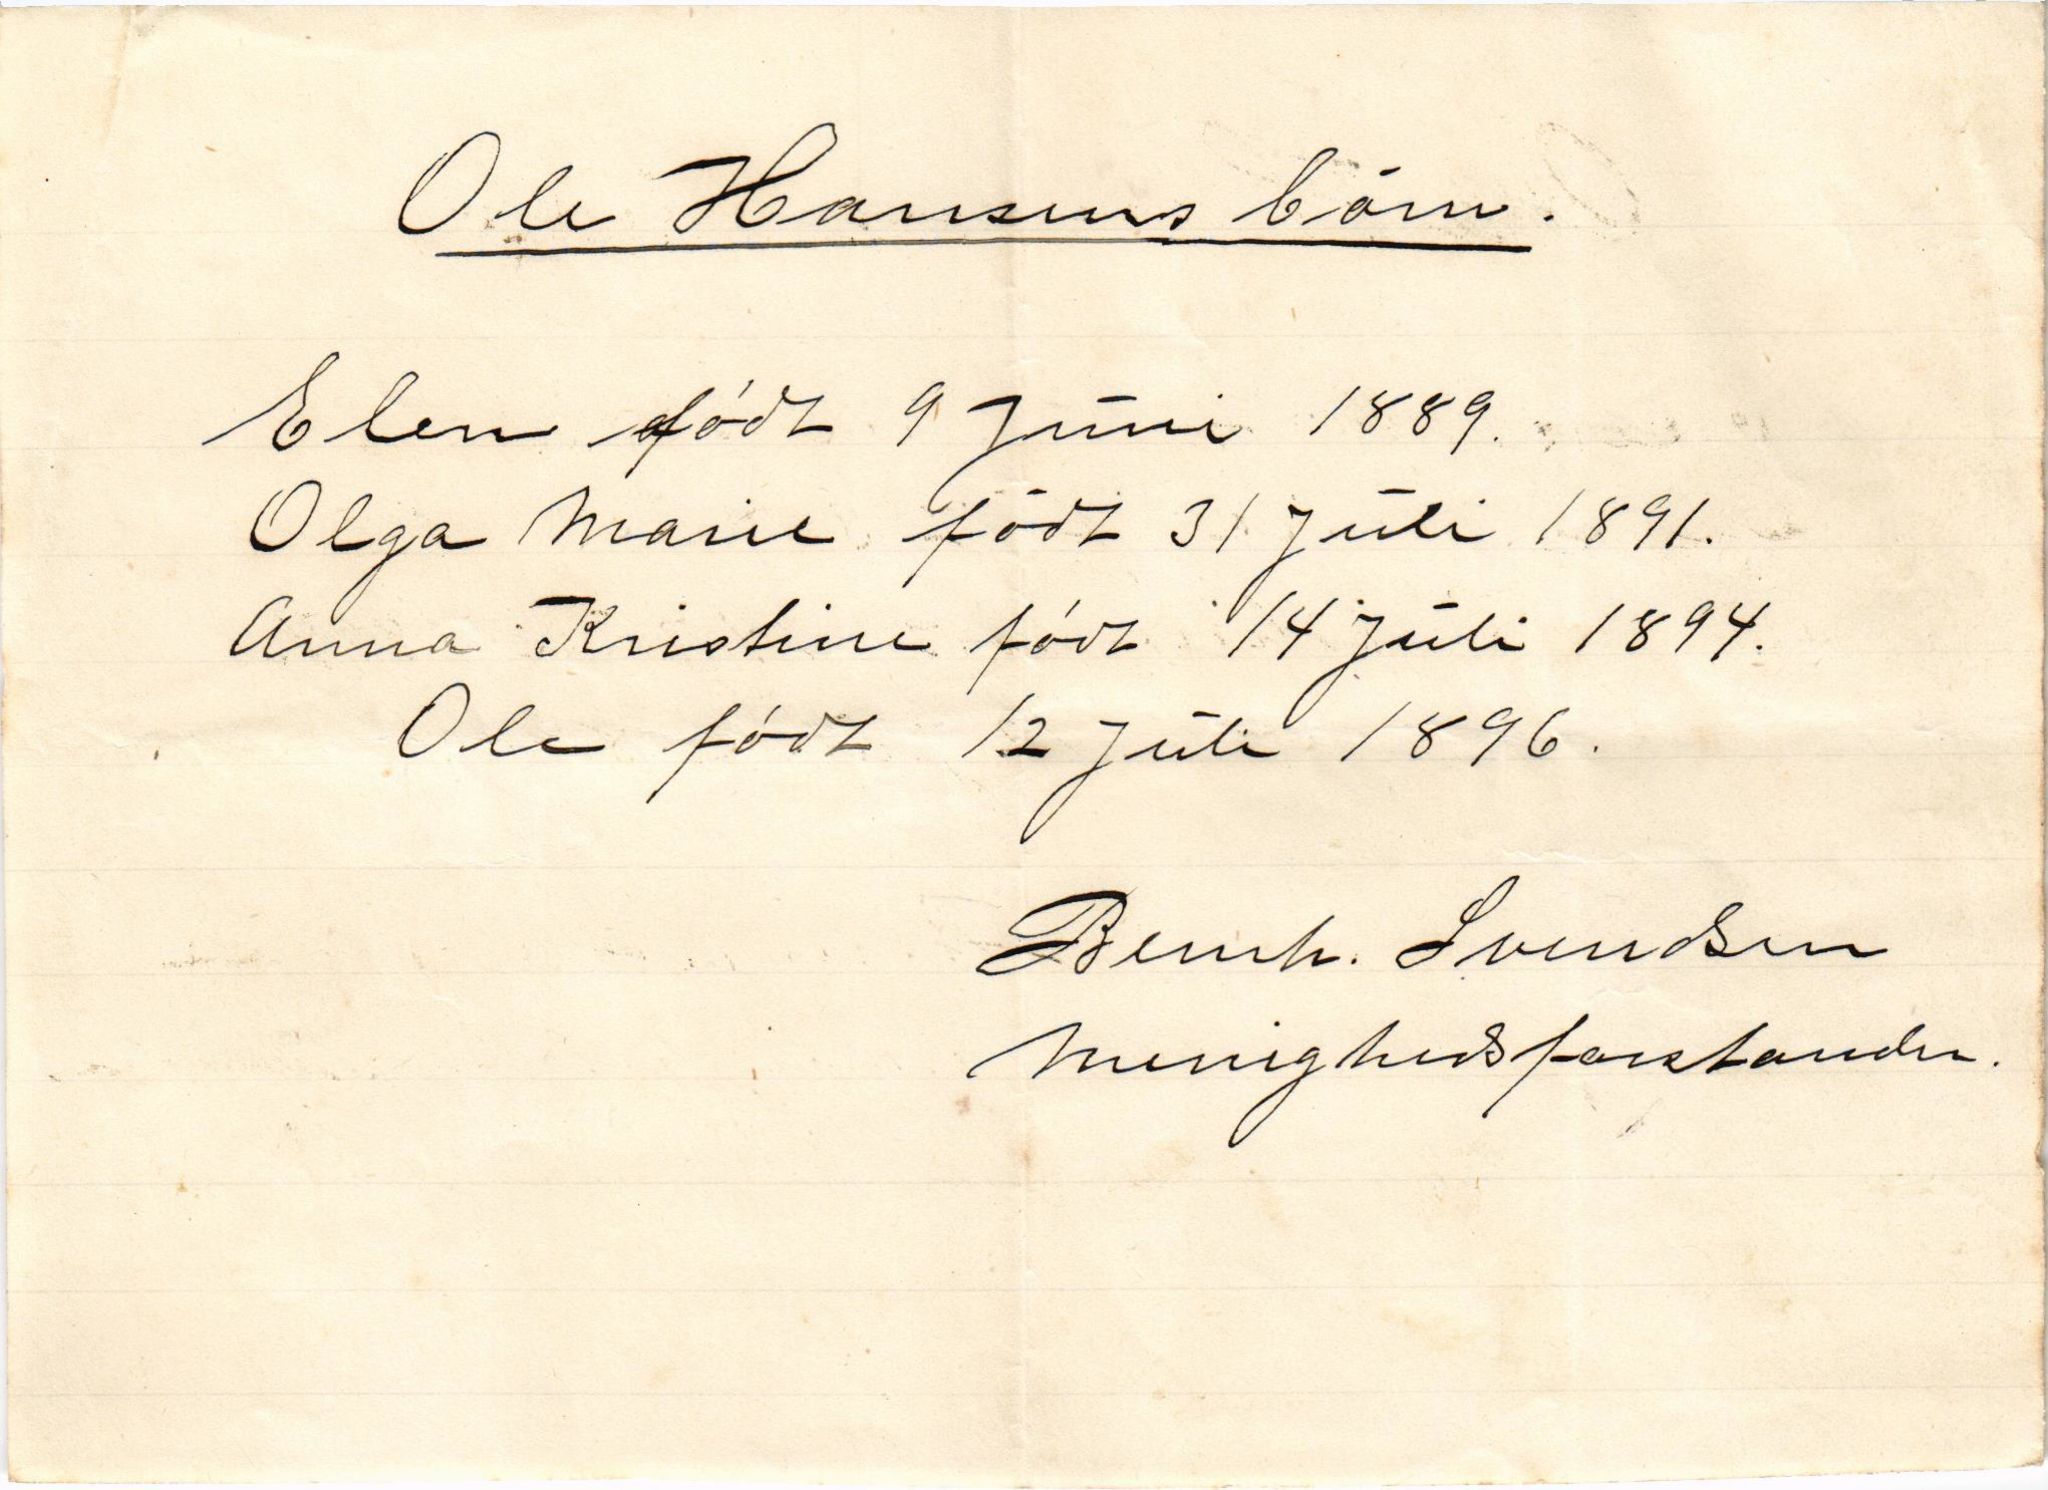 Ole Hansens börn.
Elen födt 9 Juni 1889.
Olga Marie födt 31 Juli 1891.
Anna Kristine födt 14 Juli 1894.
Ole födt 12 Juli 1896.
Bernh. Svendsen
Menighedsforstander.